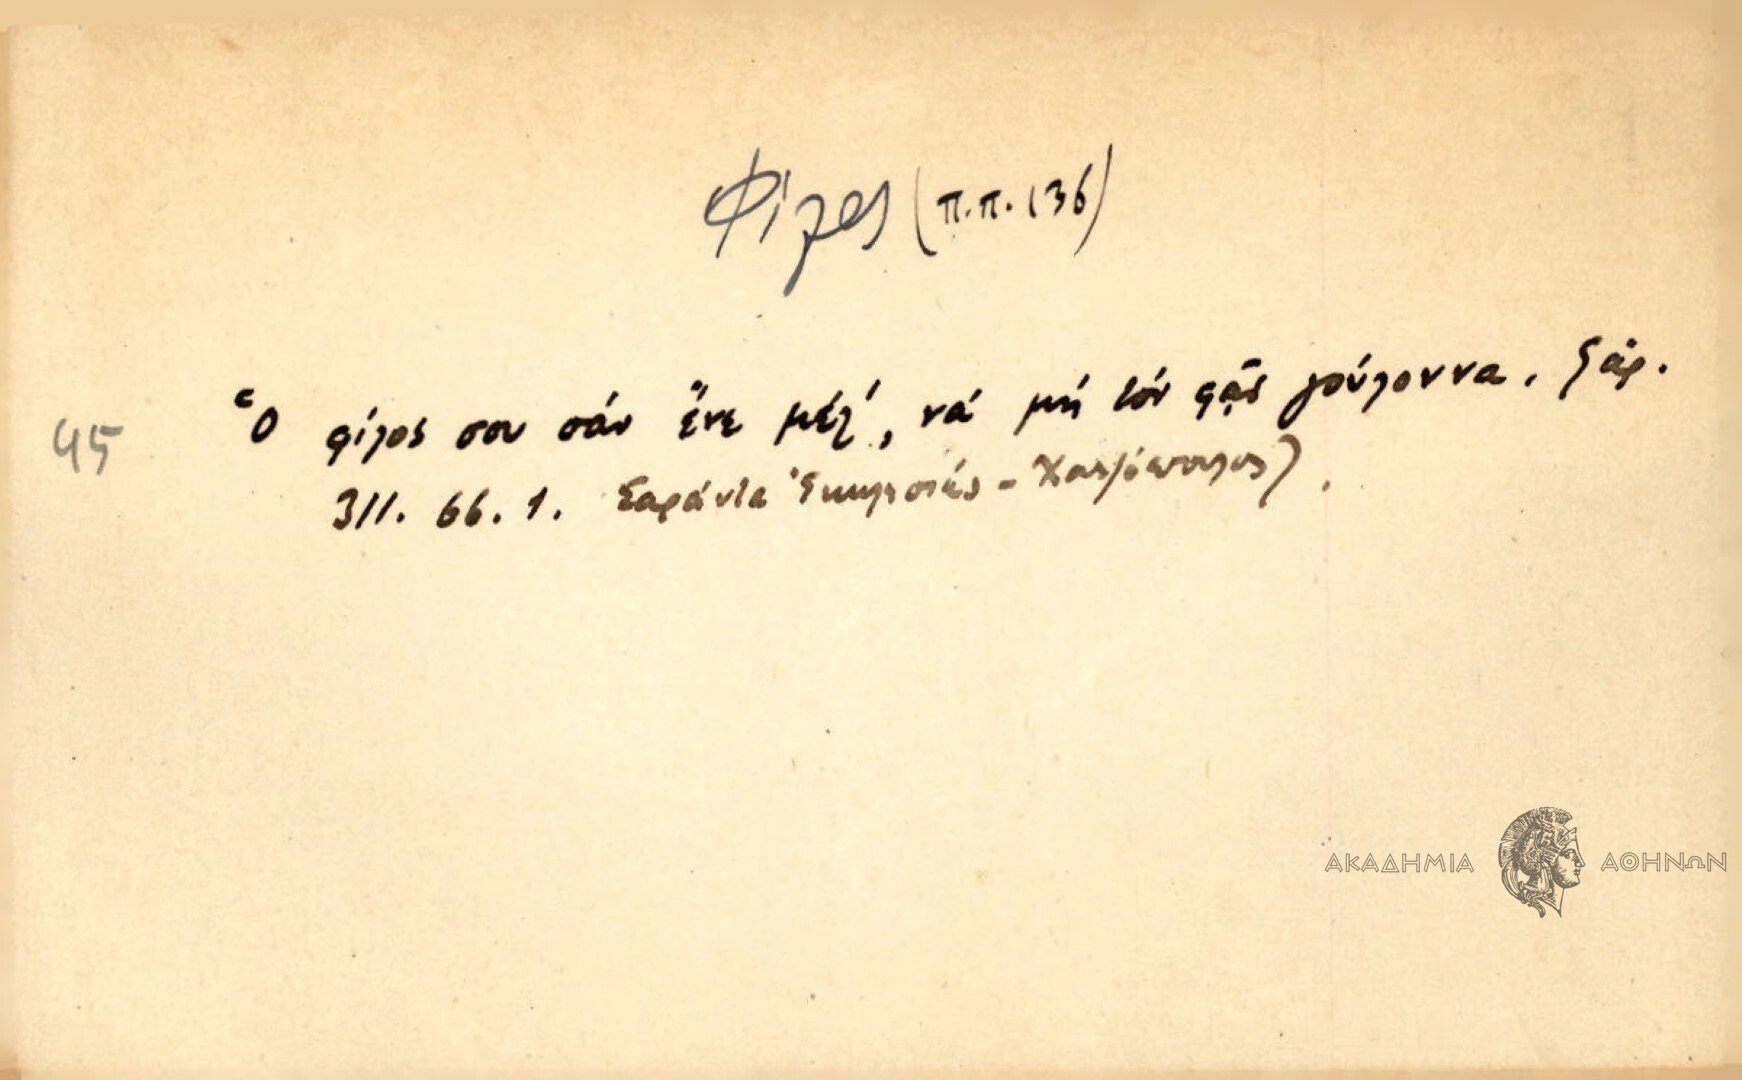 Φίλος (π.π. 136)
45
Ὁ φίλος σου σάν ἔνε μέλι, νά μή τόν φᾷς γούλοννα. Σάρ.
311. 66. 1. Σαράντα Ἐκκλησιές - Χουρμουζιάδης).
ΑΚΑΔΗΜΙΑ ΑΘΗΝΩΝ